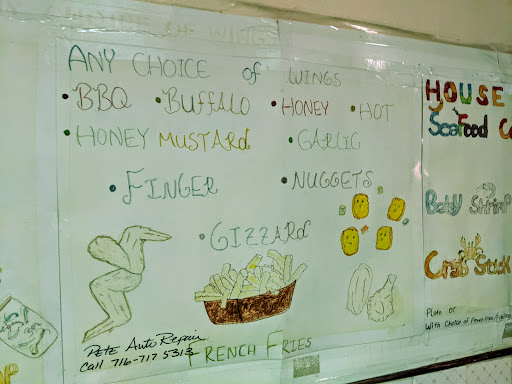 ANY CHOICE of WINGS
• BBQ • BUFFALO • HONEY • HOT
• HONEY MUSTARd • GARLIC
• FINGER • NUGGETS
• GIZZARd
FRENCH FRIES
PETE Auto Repair
Call 716-717 5313
HOUSE
Seafood
Baby Shrimp
Crab Stick
Plate or
With Choice of